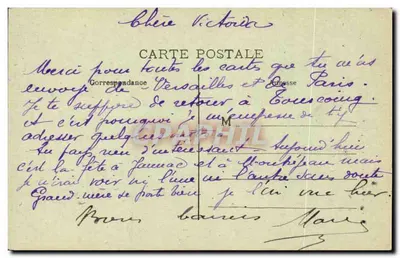 Chère Victoria
CARTE POSTALE
Correspondance
Merci pour toutes les cartes que tu m'as
envoyé de Versailles et de Paris.
Je te suppose de retour à Tourcoing
M
et c'est pourquoi je m'empresse de t'y
adresser quelques
Au pays rien d'intéressant - Aujourd'hui
c'est la fête à Jarnac et à mais
je n'irai voir ni l'une ni l'autre sans doute
Grand-mère se porte bien, je l'ai vue hier.
Bons baisers Marie